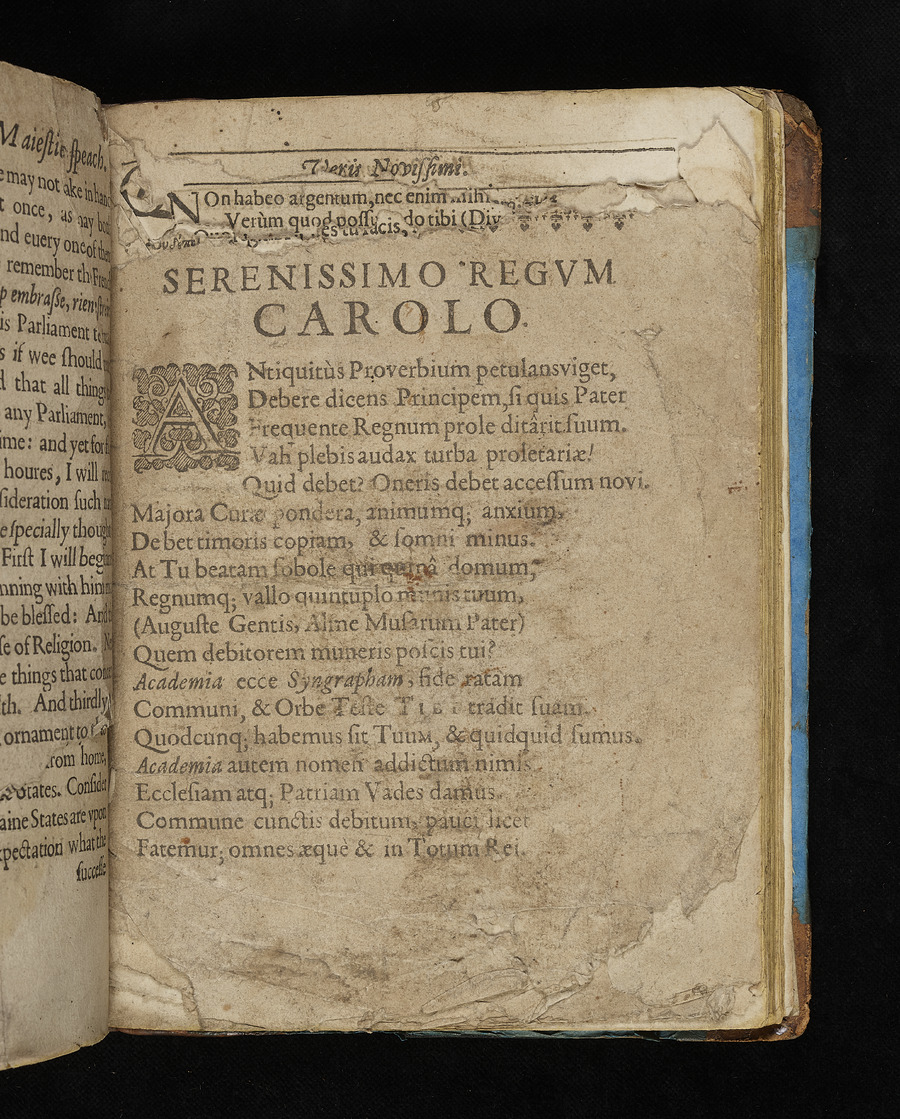 Maiestie speach.
may not take in hand
once, as may be
nd euery one of them
remember the French
p embrasse, rien
is Parliament
s if wee should
d that all things
any Parliament,
ime: and yet for
houres, I will
sideration such
especially though
First I will begin
nning with him
be blessed: And
se of Religion.
e things that con
th. And thirdly,
ornament to
from home,
States. Consider
aine States are vpon
xpectation what the
successe
Novissimi.
NOn habeo argentum, nec enim mihi
Verùm quod possu do tibi (Div
tu facis,
SERENISSIMO REGVM
CAROLO.
ANtiquitùs Proverbium petulans viget,
Debere dicens Principem, si quis Pater
Frequente Regnum prole ditârit suum.
Vah plebis audax turba proletariæ!
Quid debet? Oneris debet accessum novi.
Majora Curæ pondera, animumq; anxium,
Debet timoris copiam, & somni minus.
At Tu beatam sobole qui quinâ domum,
Regnumq; vallo quintuplo munis tuum,
(Auguste Gentis, Alme Musarum Pater)
Quem debitorem muneris poscis tui?
Academia ecce Syngrapham, fide ratam
Communi, & Orbe Teste Tibi tradit suam.
Quodcunq; habemus sit Tuum, & quidquid sumus.
Academia autem nomen addictum nimis
Ecclesiam atq; Patriam Vades damus.
Commune cunctis debitum, pauci licet
Fatemur; omnes æquè & in Totum Rei.